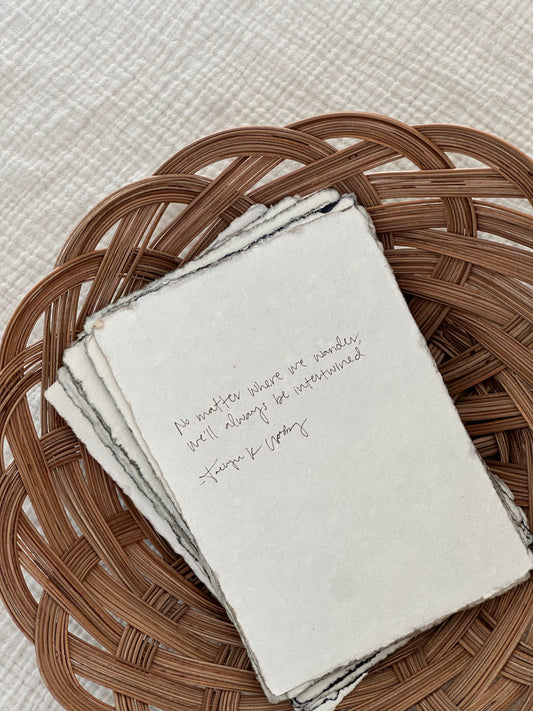 No matter where we wander,
we'll always be intertwined
- K